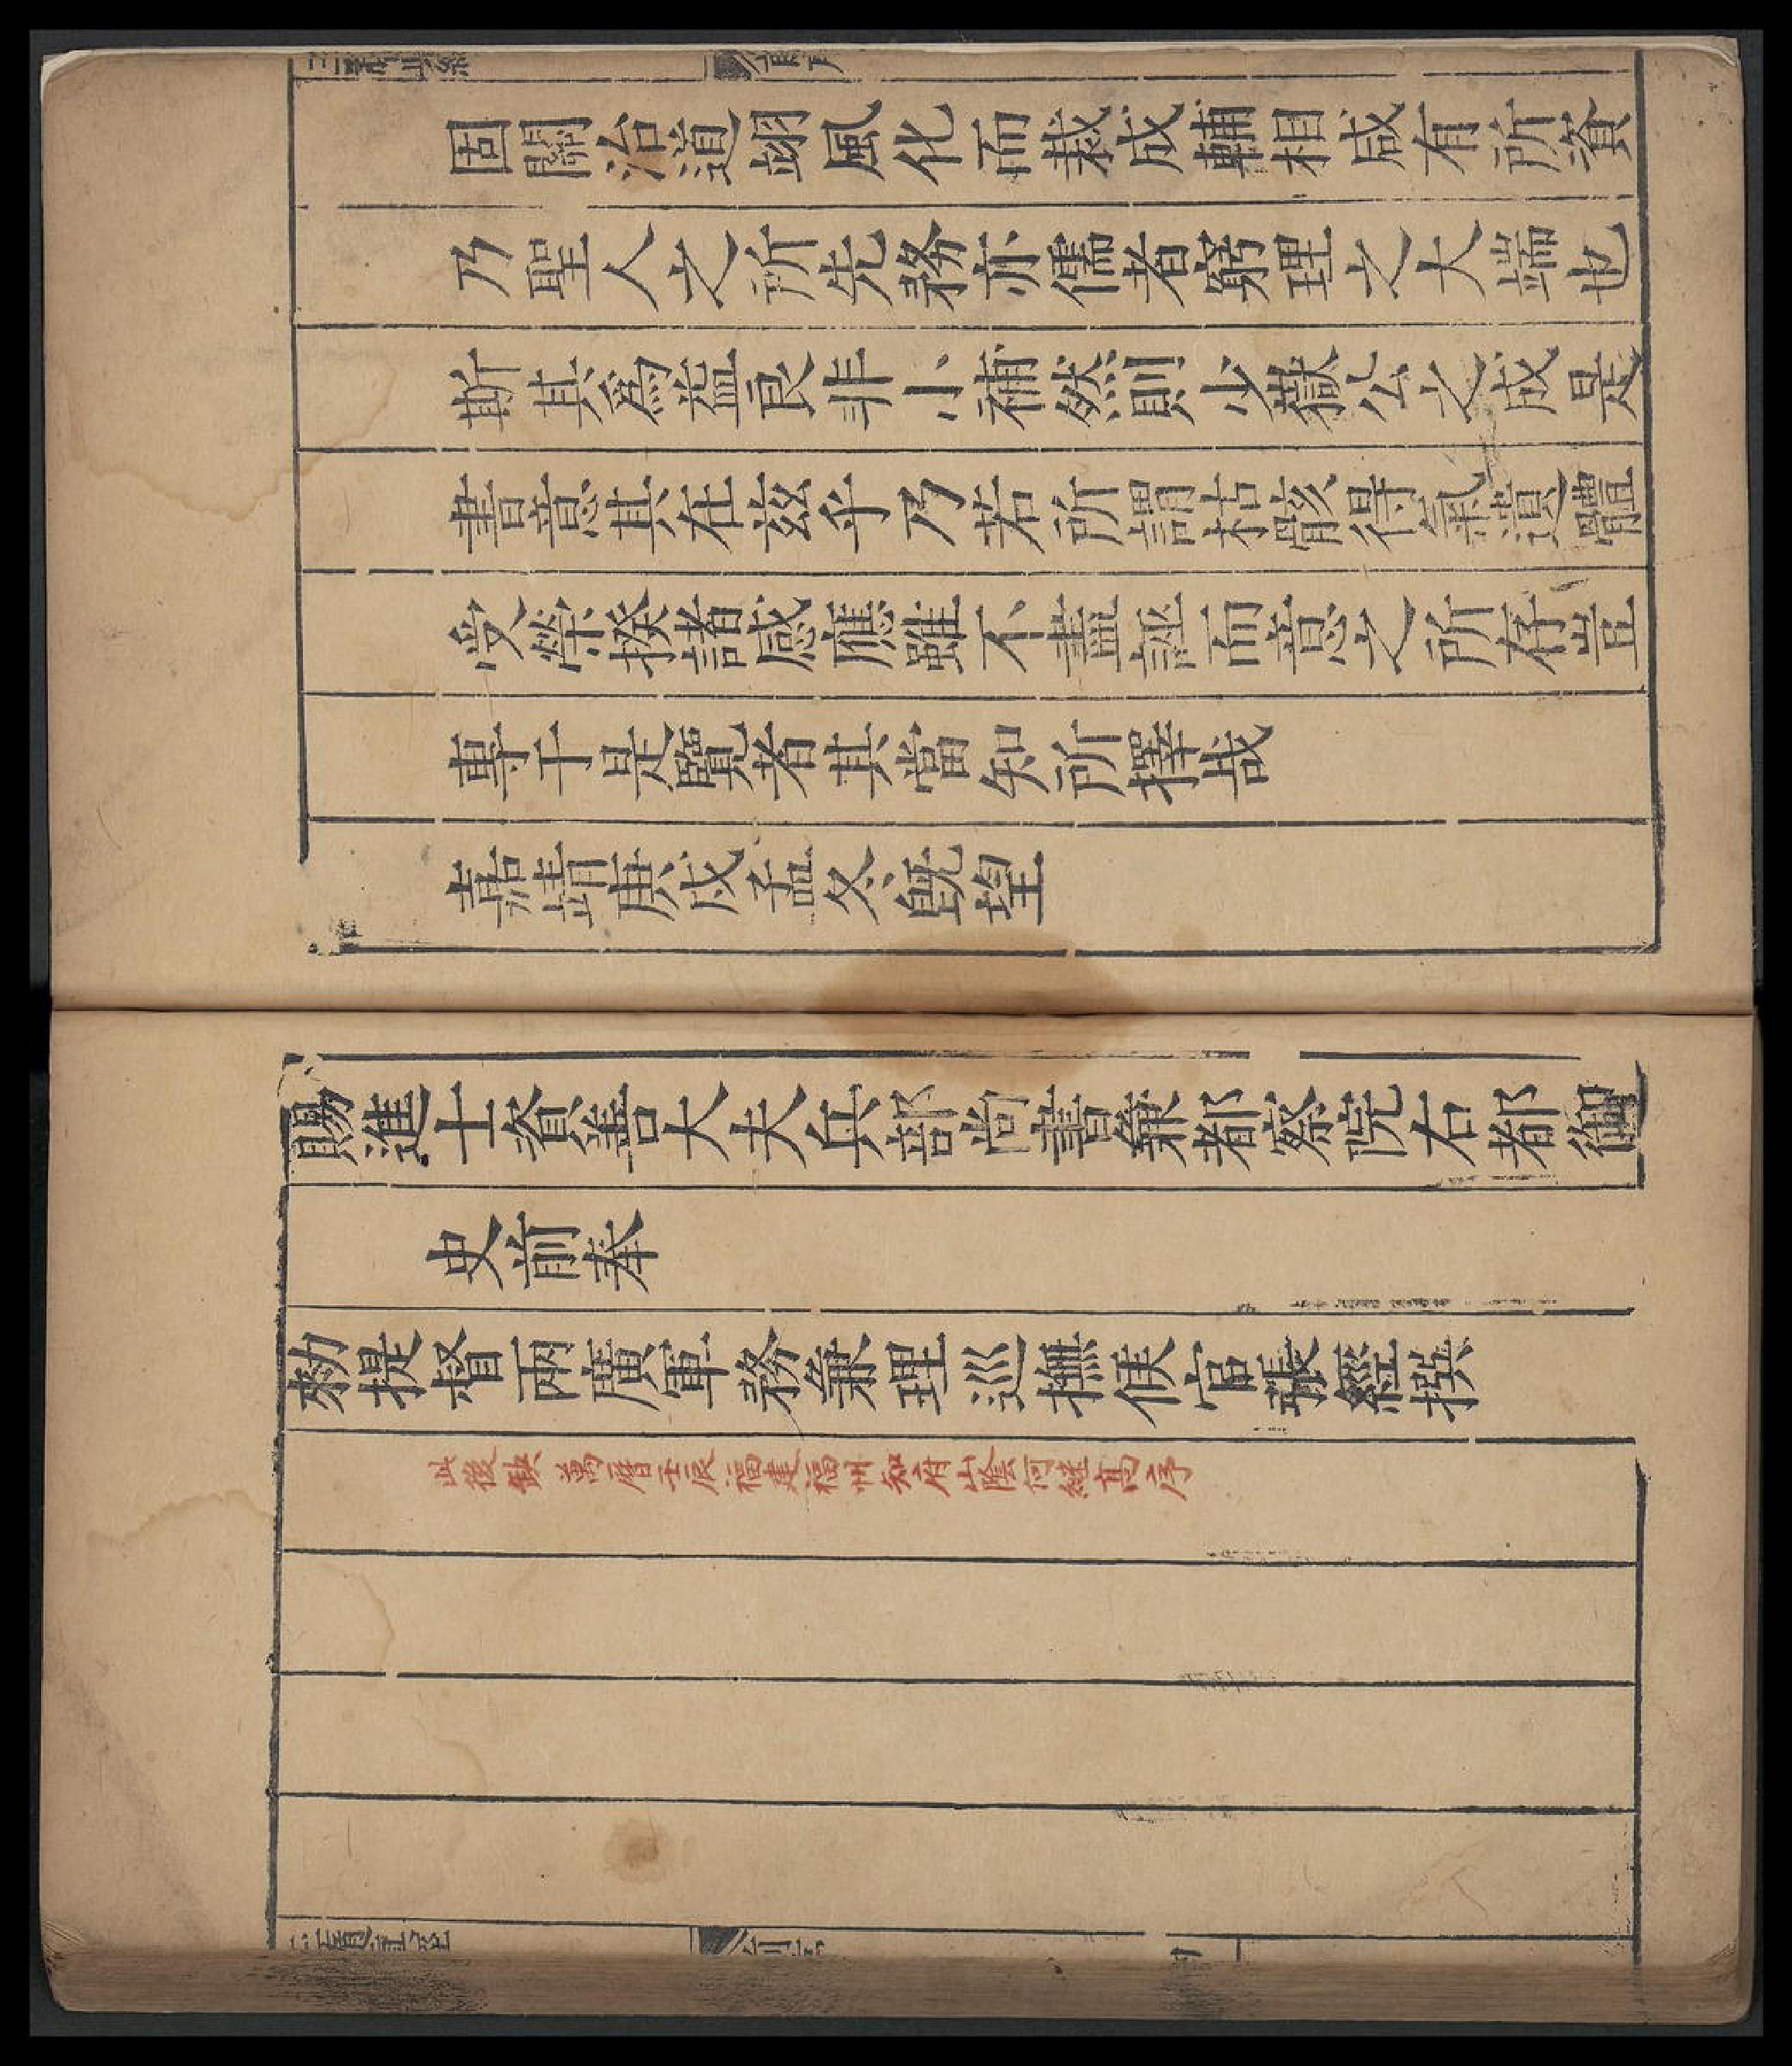 固關治道翊風化而裁成輔相咸有所資
乃聖人之所先務亦儒者窮理之大端也
斯其爲益良非小補然則少嶽公之成是
書意其在茲乎乃若所謂枯骸得氣遺體
受榮揆諸感應雖不盡誣而意之所存豈
專于是覽者其當知所擇哉
嘉靖庚戌孟冬旣望
賜進士資善大夫兵部尚書兼都察院右都御
史前奉
勑提督兩廣軍務兼理巡撫侯官張經撰
此後缺萬曆壬辰福建福州知府山陰何繼高序